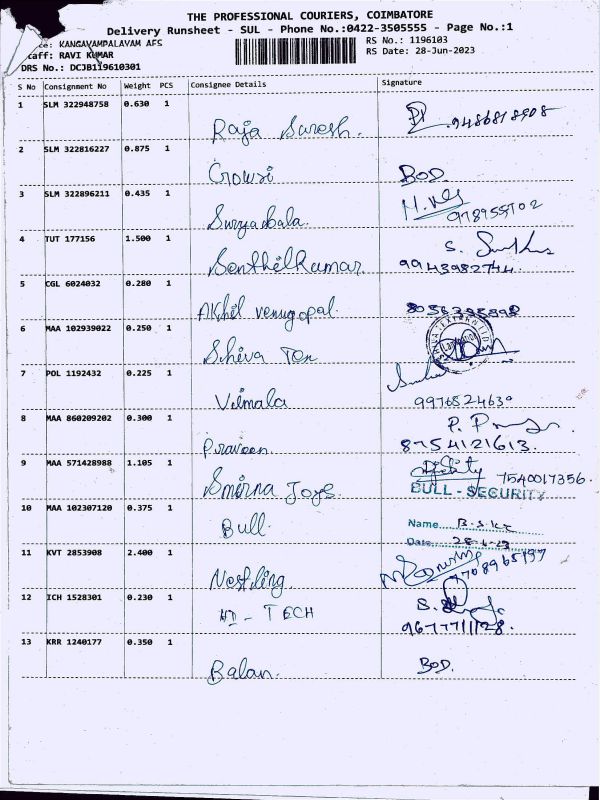 THE PROFESSIONAL COURIERS, COIMBATORE
Delivery Runsheet - SUL - Phone No.:0422-3505555 - Page No.:1
: KANGAYAMPALAYAM AES
RS No.: 1196103
taff: RAVI KUMAR
RS Date: 28-Jun-2023
DRS No.: DCJB119610301
S No Consignment No Weight PCS Consignee Details Signature
1 SLM 322948758 0.630 1
Raja Suresh.
2 SLM 322816227 0.875 1
Crowsi BOD
3 SLM 322896211 0.435 1
Suryabala. 978955702
4 TUT 177156 1.500 1
SenthilKumar 9943982744.
5 CGL 6024032 0.280 1
Akhil venugopal.
6 MAA 102939022 0.250 1
Shiva Tex
7 POL 1192432 0.225 1
Vimala 9976524630
8 MAA 860209202 0.300 1
Praveen 8754121613.
9 MAA 571428988 1.105 1
Smirna Joys. 7540017356.
BULL - SECURITY
10 MAA 102307120 0.375 1
Bull. Name
Date 28-6-23
11 KVT 2853908 2.400 1
Nestling 9708965197
12 ICH 1528301 0.230 1
HI-TECH 9677711128.
13 KRR 1240177 0.350 1
Balan. BOD.